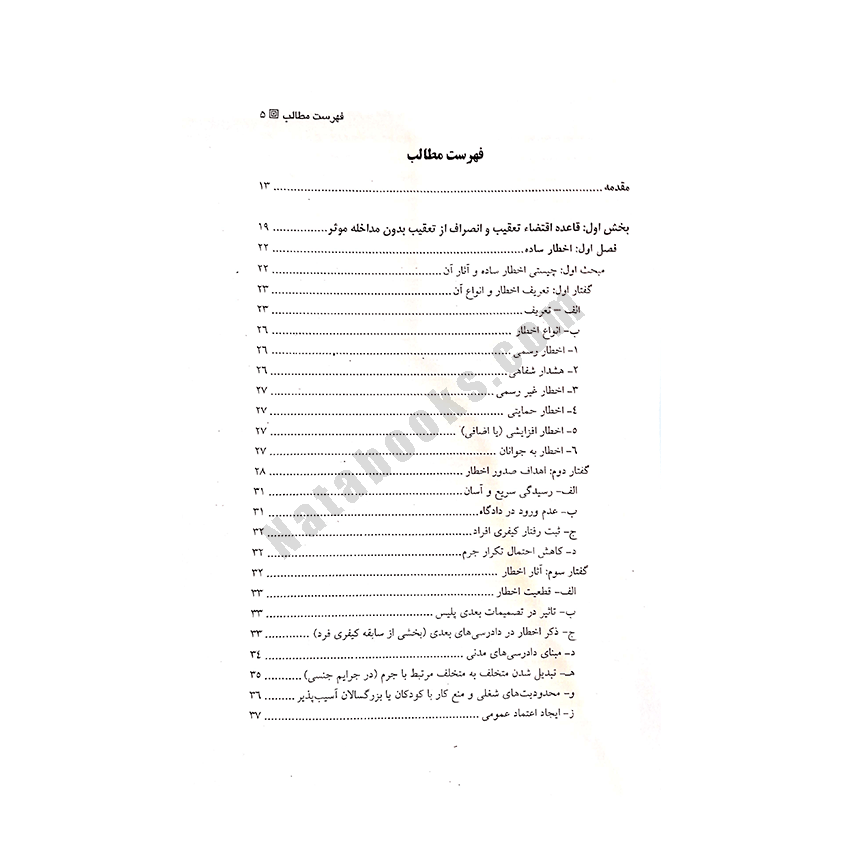 فهرست مطالب ۵
فهرست مطالب
مقدمه ........ ۱۳
بخش اول: قاعده اقتضاء تعقیب و انصراف از تعقیب بدون مداخله موثر ........ ۱۹
فصل اول: اخطار ساده ........ ۲۲
مبحث اول: چیستی اخطار ساده و آثار آن ........ ۲۲
گفتار اول: تعریف اخطار و انواع آن ........ ۲۳
الف – تعریف ........ ۲۳
ب- انواع اخطار ........ ۲۶
۱- اخطار رسمی ........ ۲۶
۲- هشدار شفاهی ........ ۲۶
۳- اخطار غیر رسمی ........ ۲۷
۴- اخطار حمایتی ........ ۲۷
۵- اخطار افزایشی (یا اضافی) ........ ۲۷
۶- اخطار به جوانان ........ ۲۷
گفتار دوم: اهداف صدور اخطار ........ ۲۸
الف- رسیدگی سریع و آسان ........ ۳۱
ب- عدم ورود در دادگاه ........ ۳۱
ج- ثبت رفتار کیفری افراد ........ ۳۲
د- کاهش احتمال تکرار جرم ........ ۳۲
گفتار سوم: آثار اخطار ........ ۳۲
الف- قطعیت اخطار ........ ۳۳
ب- تاثیر در تصمیمات بعدی پلیس ........ ۳۳
ج- ذکر اخطار در دادرسی‌های بعدی (بخشی از سابقه کیفری فرد) ........ ۳۳
د- مبنای دادرسی‌های مدنی ........ ۳۴
هـ- تبدیل شدن متخلف به متخلف مرتبط با جرم (در جرایم جنسی) ........ ۳۵
و- محدودیت‌های شغلی و منع کار با کودکان یا بزرگسالان آسیب‌پذیر ........ ۳۶
ز- ایجاد اعتماد عمومی ........ ۳۷
Natabooks.com